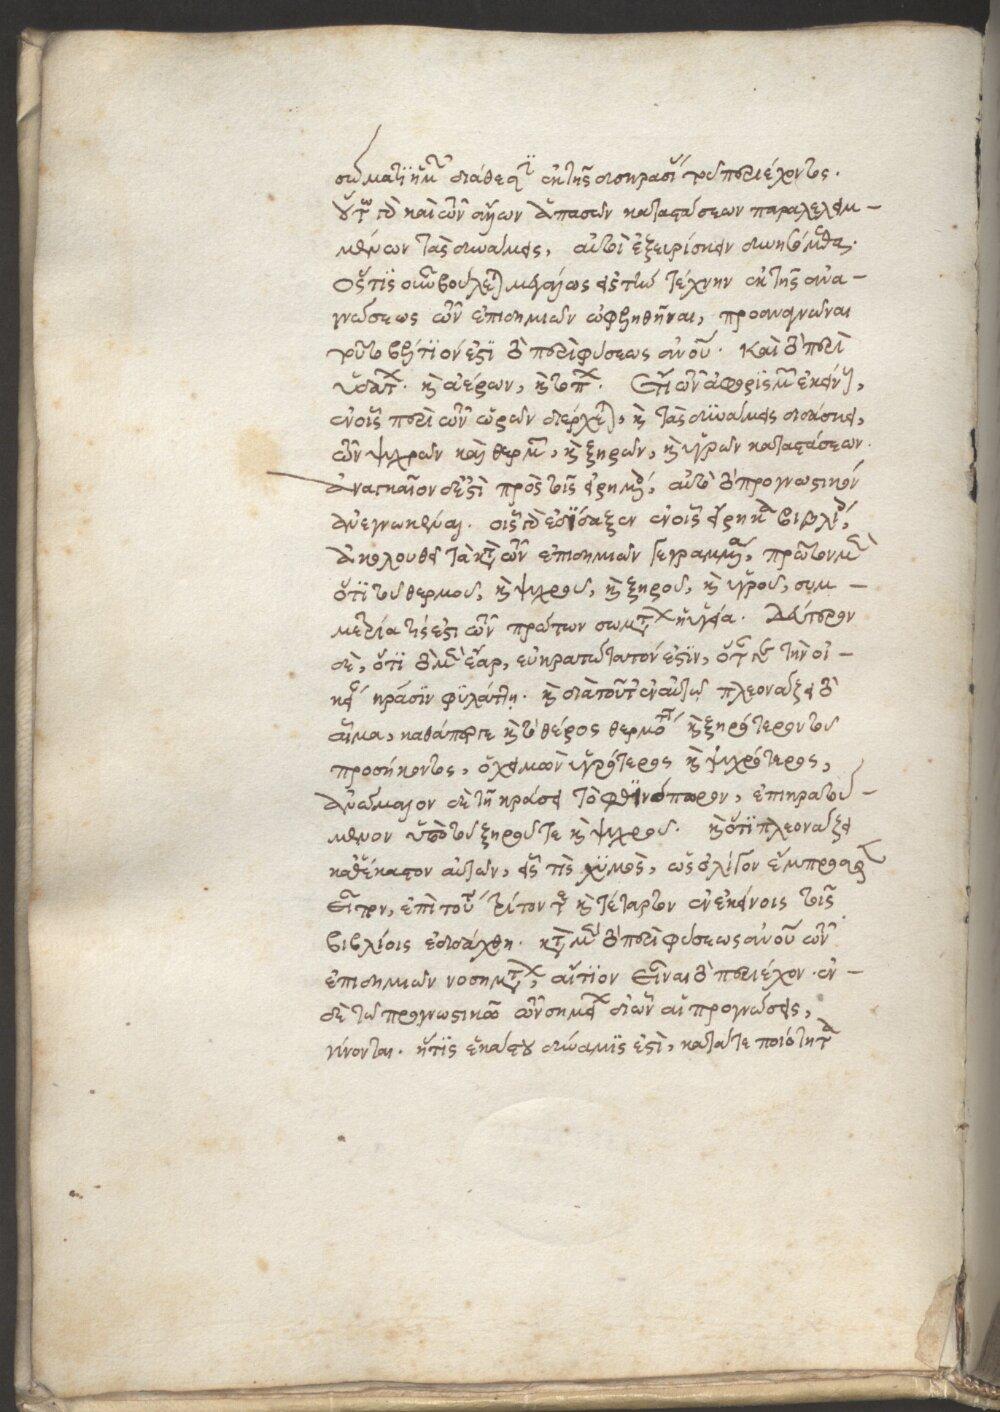 σώματι ἡμῶν διάθεσιν ἐκ τῆς δυσκρασίας τοῦ περιέχοντος.
οὕτω δὲ καὶ τῶν ἄλλων ἁπασῶν καταστάσεων παραλελειμ-
μένων τὰς δυνάμεις, αὐτοὶ ἐξευρίσκειν δυνησόμεθα.
Ὅστις οὖν βούλεται μεγάλως εἰς τὴν τέχνην ἐκ τῆς ἀνα-
γνώσεως τῶν ἐπιδημιῶν ὠφεληθῆναι, προαναγνῶναι
τοῦτο βέλτιόν ἐστι τὸ περὶ φύσεως ἀνθρώπου. Καὶ τὸ περὶ
ὑδάτων. καὶ ἀέρων, καὶ τόπων. Ἔτι τῶν ἀφορισμῶν ἐκεῖνα,
ἐν οἷς περὶ τῶν ὡρῶν διέρχεται, καὶ τὰς δυνάμεις διδάσκει,
τῶν ψυχρῶν καὶ θερμῶν, καὶ ξηρῶν, καὶ ὑγρῶν καταστάσεων.
Ἀναγκαῖον δέ ἐστι πρὸς τοῖς εἰρημένοις, αὐτὸ τὸ προγνωστικὸν
ἀνεγνωκέναι. οἷς δὲ ἐδίδαξεν ἐν οἷς εἴρηκα βιβλίοις,
ἀκόλουθα τὰ κατὰ τῶν ἐπιδημιῶν γεγραμμένα, πρῶτον μὲν
ὅτι τοῦ θερμοῦ, καὶ ψυχροῦ, καὶ ξηροῦ, καὶ ὑγροῦ, συμ-
μετρία τίς ἐστι τῶν πρώτων σωμάτων ἡ ὑγεία. Δεύτερον
δὲ, ὅτι τὸ μὲν ἔαρ, εὐκρατώτατόν ἐστιν, ὅταν τὴν οἰ-
κείαν κρᾶσιν φυλάττῃ. καὶ διὰ τοῦτ' ἐν αὐτῷ πλεονάζει τὸ
αἷμα, καθάπερ γε καὶ τὸ θέρος θερμότερον καὶ ξηρότερον τοῦ
προσήκοντος, ὁ χειμὼν ὑγρότερος καὶ ψυχρότερος,
ἀνώμαλον δὲ τῇ κράσει τὸ φθινόπωρον, ἐπικρατού-
μενον ὑπὸ τοῦ ξηροῦ τε καὶ ψυχροῦ. καὶ ὅτι πλεονάζει
καθ' ἕκαστον αὐτῶν, εἷς τις χυμὸς, ὡς ὀλίγον ἔμπροσθεν
εἶπον, ἐπὶ τοῦ τρίτον καὶ τέταρτον ἐν ἐκείνοις τοῖς
βιβλίοις ἐδιδάχθη. κατὰ μὲν τὸ περὶ φύσεως ἀνθρώπου τῶν
ἐπιδημιῶν νοσημάτων, αἴτιον εἶναι τὸ περιέχον. ἐν
δὲ τῷ προγνωστικῷ τῶν σημείων δι' ὧν αἱ προγνώσεις,
γίνονται. ἥτις ἑκάστου δύναμίς ἐστι, κατά τε ποιότητα